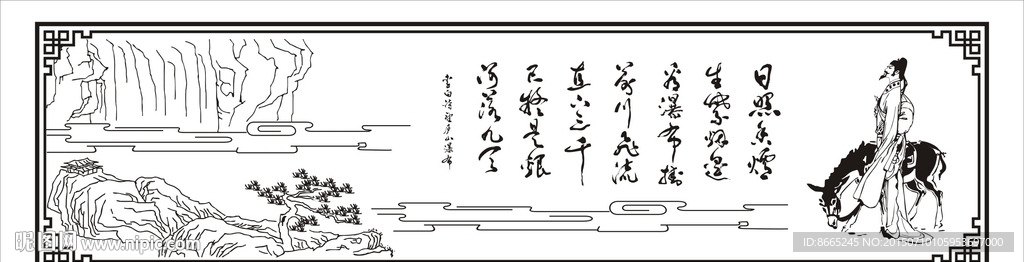 日照香炉
生紫烟遥
看瀑布挂
前川飞流
直下三千
尺疑是银
河落九天
李白诗望庐山瀑布
昵图网 www.nipic.com
ID:8665245 NO:20150710105953697000